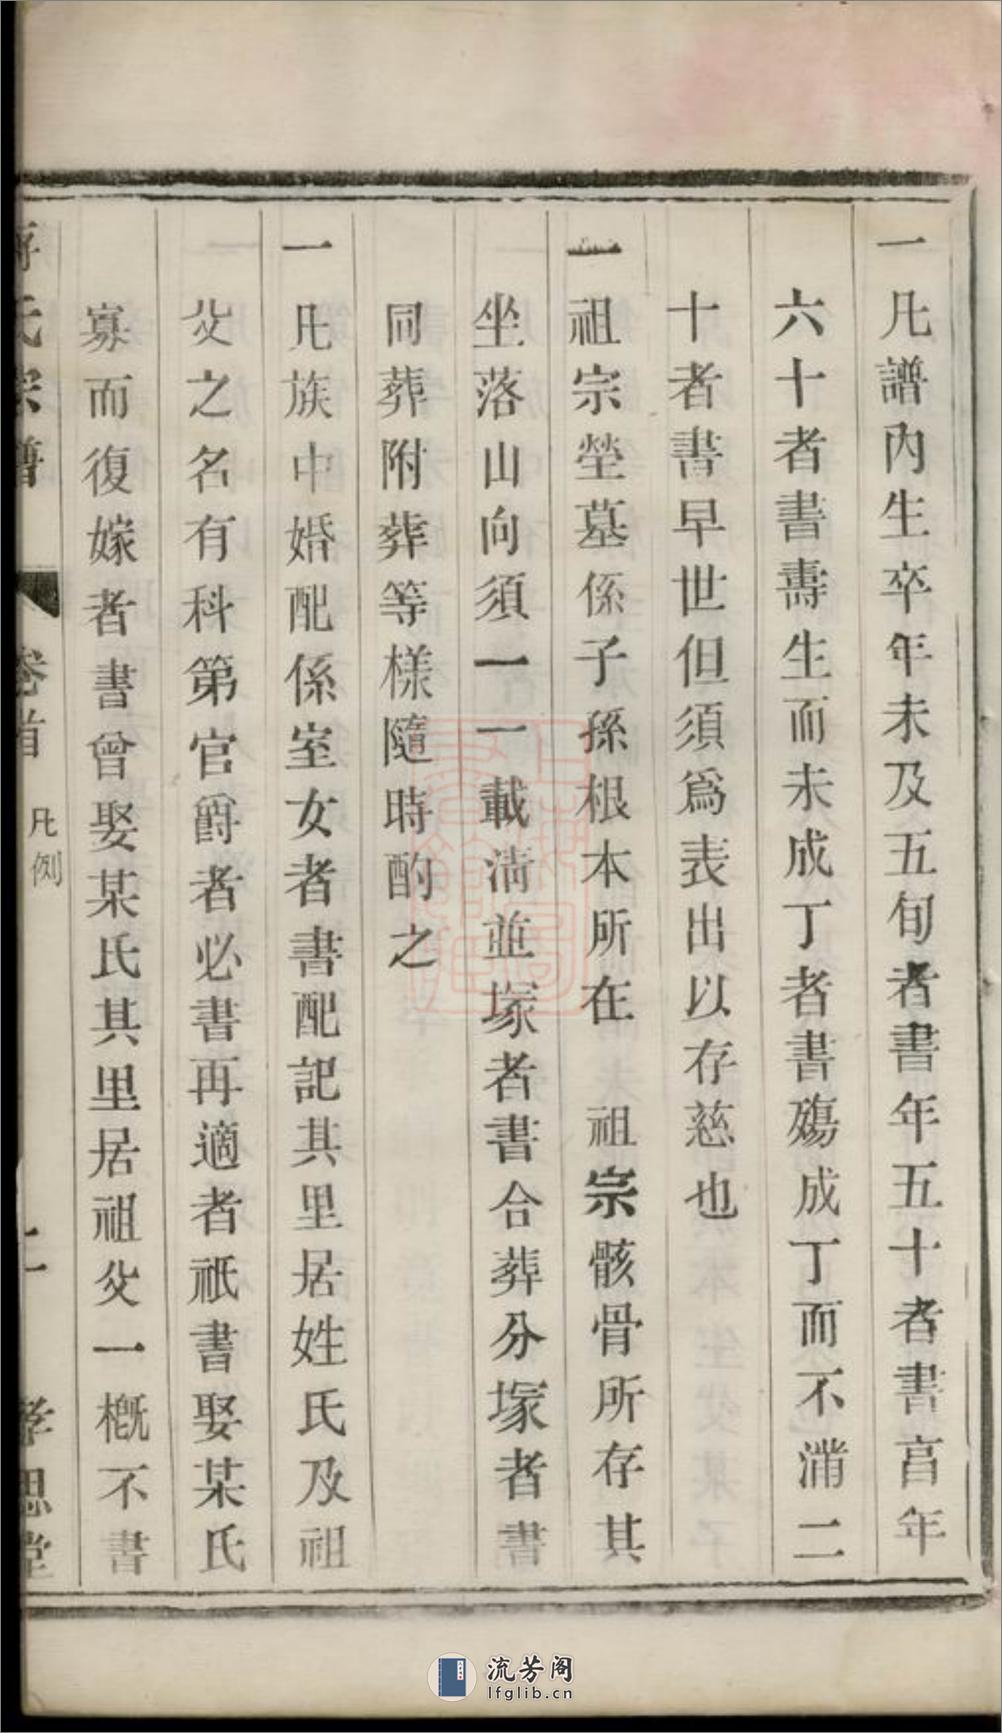 一凡譜內生卒年未及五旬者書年五十者書亯年
六十者書壽生而未成丁者書殤成丁而不滿二
十者書早世但須爲表出以存慈也
一祖宗塋墓係子孫根本所在　祖宗骸骨所存其
坐落山向須一一載清並塚者書合葬分塚者書
同葬附葬等樣隨時酌之
一凡族中婚配係室女者書配記其里居姓氏及祖
父之名有科第官爵者必書再適者祇書娶某氏
寡而復嫁者書曾娶某氏其里居祖父一槪不書
氏宗譜　卷首　凡例　孝思堂
流芳阁
lfglib.cn